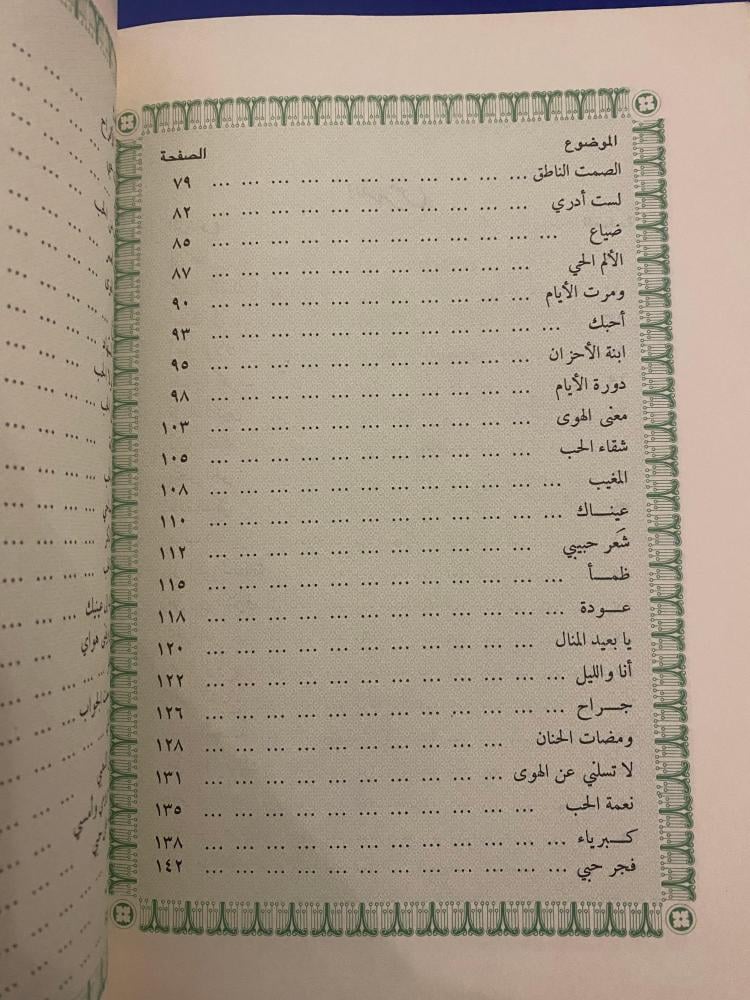 الموضوع الصفحة
الصمت الناطق ... ... ... ... ... ... ... ... ... ... ... ٧٩
لست أدري ... ... ... ... ... ... ... ... ... ... ... ٨٢
ضياع ... ... ... ... ... ... ... ... ... ... ... ... ٨٥
الألم الحي ... ... ... ... ... ... ... ... ... ... ... ٨٧
ومرت الأيام ... ... ... ... ... ... ... ... ... ... ... ٩٠
أحبك ... ... ... ... ... ... ... ... ... ... ... ... ٩٣
ابنة الأحزان ... ... ... ... ... ... ... ... ... ... ... ٩٥
دورة الأيام ... ... ... ... ... ... ... ... ... ... ... ٩٨
معنى الهوى ... ... ... ... ... ... ... ... ... ... ... ١٠٣
شقاء الحب ... ... ... ... ... ... ... ... ... ... ... ١٠٥
المغيب ... ... ... ... ... ... ... ... ... ... ... ... ١٠٨
عينـــاك ... ... ... ... ... ... ... ... ... ... ... ... ١١٠
شَعر حبيبي ... ... ... ... ... ... ... ... ... ... ... ١١٢
ظمــأ ... ... ... ... ... ... ... ... ... ... ... ... ١١٥
عـــودة ... ... ... ... ... ... ... ... ... ... ... ... ١١٨
يا بعيد المنال ... ... ... ... ... ... ... ... ... ... ... ١٢٠
أنا والليل ... ... ... ... ... ... ... ... ... ... ... ... ١٢٢
جـــراح ... ... ... ... ... ... ... ... ... ... ... ... ١٢٦
ومضات الحنان ... ... ... ... ... ... ... ... ... ... ١٢٨
لا تسلني عن الهوى ... ... ... ... ... ... ... ... ... ... ١٣١
نعمة الحب ... ... ... ... ... ... ... ... ... ... ... ١٣٥
كـــبرياء ... ... ... ... ... ... ... ... ... ... ... ... ١٣٨
فجر حبي ... ... ... ... ... ... ... ... ... ... ... ... ١٤٢